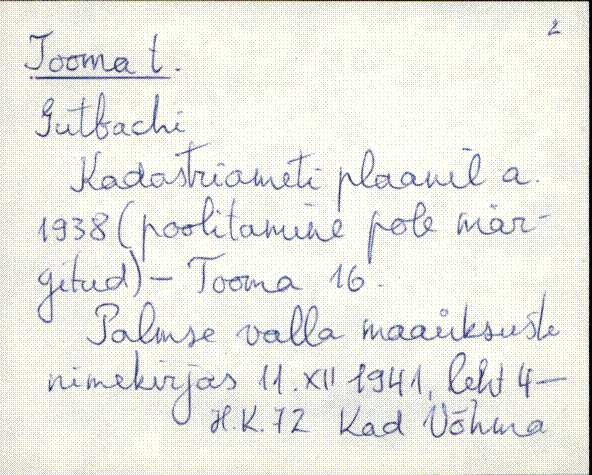 2
Tooma t.
Gutbachi
Kadastriameti plaanil a.
1938 (poolitamine pole mär-
gitud) – Tooma 16.
Palmse valla maaüksuste
nimekirjas 11.XII 1941, leht 4 –
H.K.72 Kad Võhma